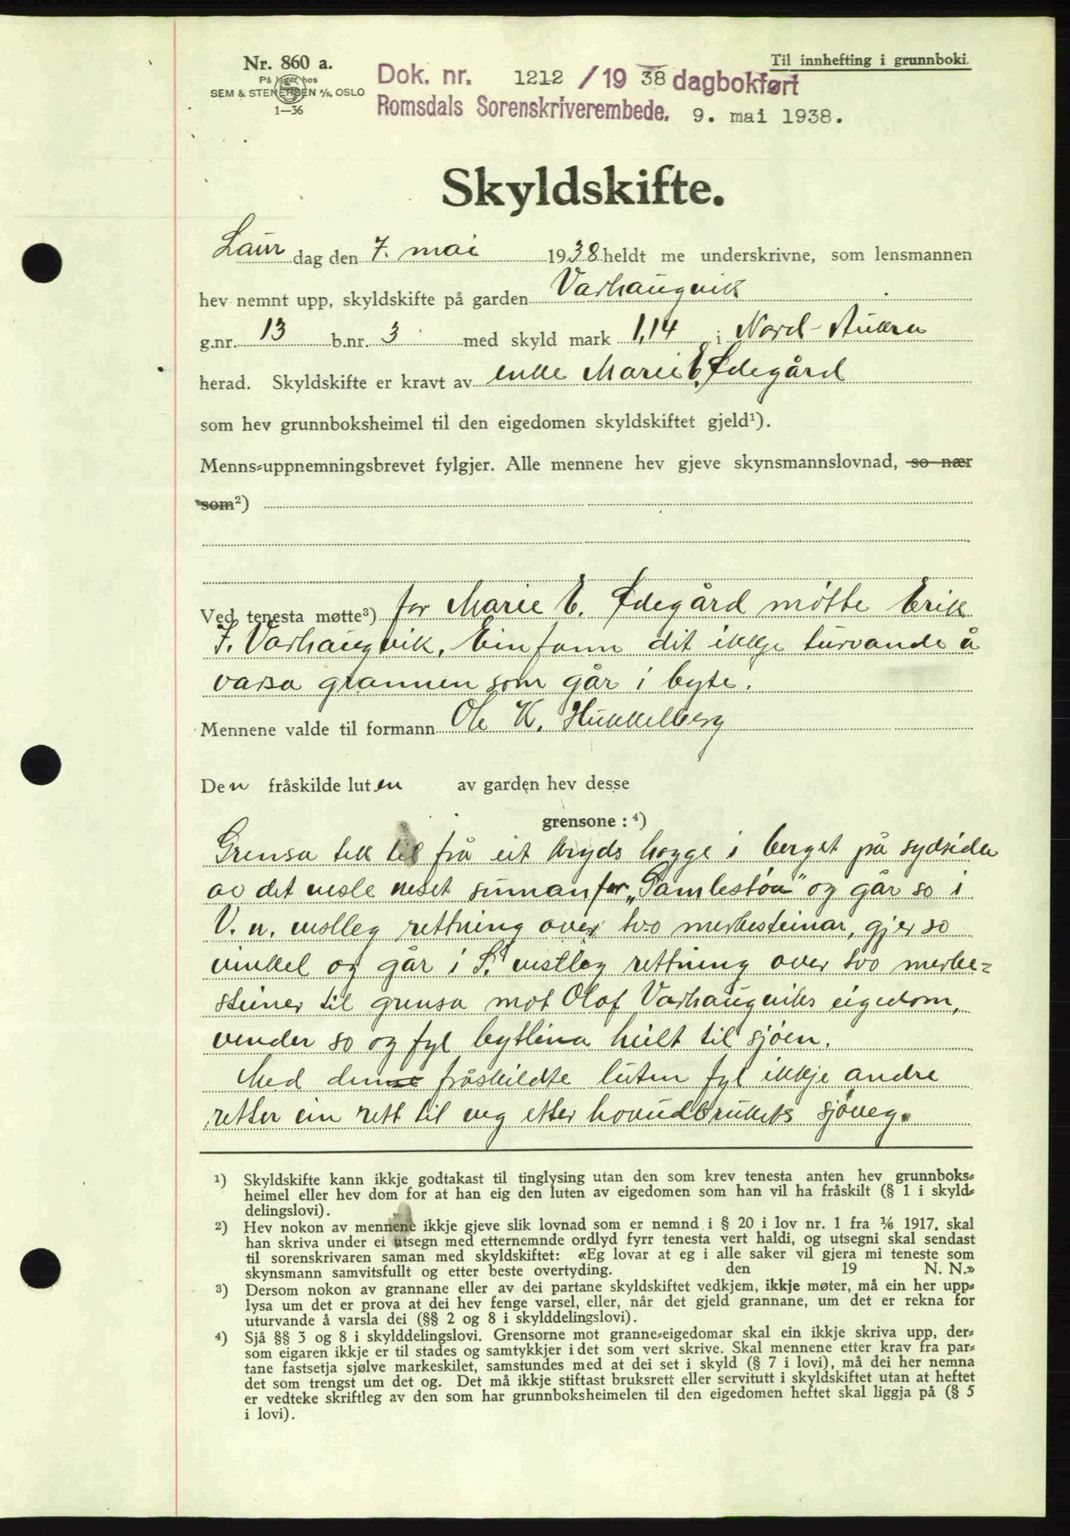 Nr. 860 a.
På lager hos
SEM & STENERSEN A/S, OSLO
1—36
Til innhefting i grunnboki.
Dok. nr. 1212 / 19 38 dagbokført
Romsdals Sorenskriverembede. 9. mai 1938.
Skyldskifte.
Laur dag den 7. mai 1938 heldt me underskrivne, som lensmannen
hev nemnt upp, skyldskifte på garden Varhaugvik
g.nr. 13 b.nr. 3 med skyld mark 1,14 i Nord-Aukra
herad. Skyldskifte er kravt av enke Marie E. Ødegård
som hev grunnboksheimel til den eigedomen skyldskiftet gjeld¹).
Menns-uppnemningsbrevet fylgjer. Alle mennene hev gjeve skynsmannslovnad, so nær
som²)
Ved tenesta møtte³) for Marie E. Ødegård møtte Erik
J. Varhaugvik. Ein fann dit ikkje turvande å
varsa grannen som går i byte.
Mennene valde til formann Ole K. Hukkelberg
Den fråskilde luten av garden hev desse
grensone: ⁴)
Grensa tek til frå eit kryds hogge i berget på sydsiden
av det vesle neset sunnanfor „Gamlestøa" og går so i
V. n. vestleg rettning over tvo merkesteinar, gjer so
vinkel og går i S. vestleg rettning over tvo merke-
steiner til grensa mot Olaf Varhaugviks eigedom,
vender so og fyl bytlina heilt til sjøen.
Med den fråskildte luten fyl ikkje andre
retter ein rett til veg etter hovudbrukets sjøveg.
¹) Skyldskifte kann ikkje godtakast til tinglysing utan den som krev tenesta anten hev grunnboks-
heimel eller hev dom for at han eig den luten av eigedomen som han vil ha fråskilt (§ 1 i skyld-
delingslovi).
²) Hev nokon av mennene ikkje gjeve slik lovnad som er nemnd i § 20 i lov nr. 1 fra 1/6 1917, skal
han skriva under ei utsegn med etternemnde ordlyd fyrr tenesta vert haldi, og utsegni skal sendast
til sorenskrivaren saman med skyldskiftet: «Eg lovar at eg i alle saker vil gjera mi teneste som
skynsmann samvitsfullt og etter beste overtyding. den 19 N. N.»
³) Dersom nokon av grannane eller av dei partane skyldskiftet vedkjem, ikkje møter, må ein her upp-
lysa um det er prova at dei hev fenge varsel, eller, når det gjeld grannane, um det er rekna for
uturvande å varsla dei (§§ 2 og 8 i skylddelingslovi).
⁴) Sjå §§ 3 og 8 i skylddelingslovi. Grensorne mot granne-eigedomar skal ein ikkje skriva upp, der-
som eigaren ikkje er til stades og samtykkjer i det som vert skrive. Skal mennene etter krav fra par-
tane fastsetja sjølve markeskilet, samstundes med at dei set i skyld (§ 7 i lovi), må dei her nemna
det som trengst um det og. Det må ikkje stiftast bruksrett eller servitutt i skyldskiftet utan at heftet
er vedteke skriftleg av den som har grunnboksheimelen til den eigedomen heftet skal liggja på (§ 5
i lovi).